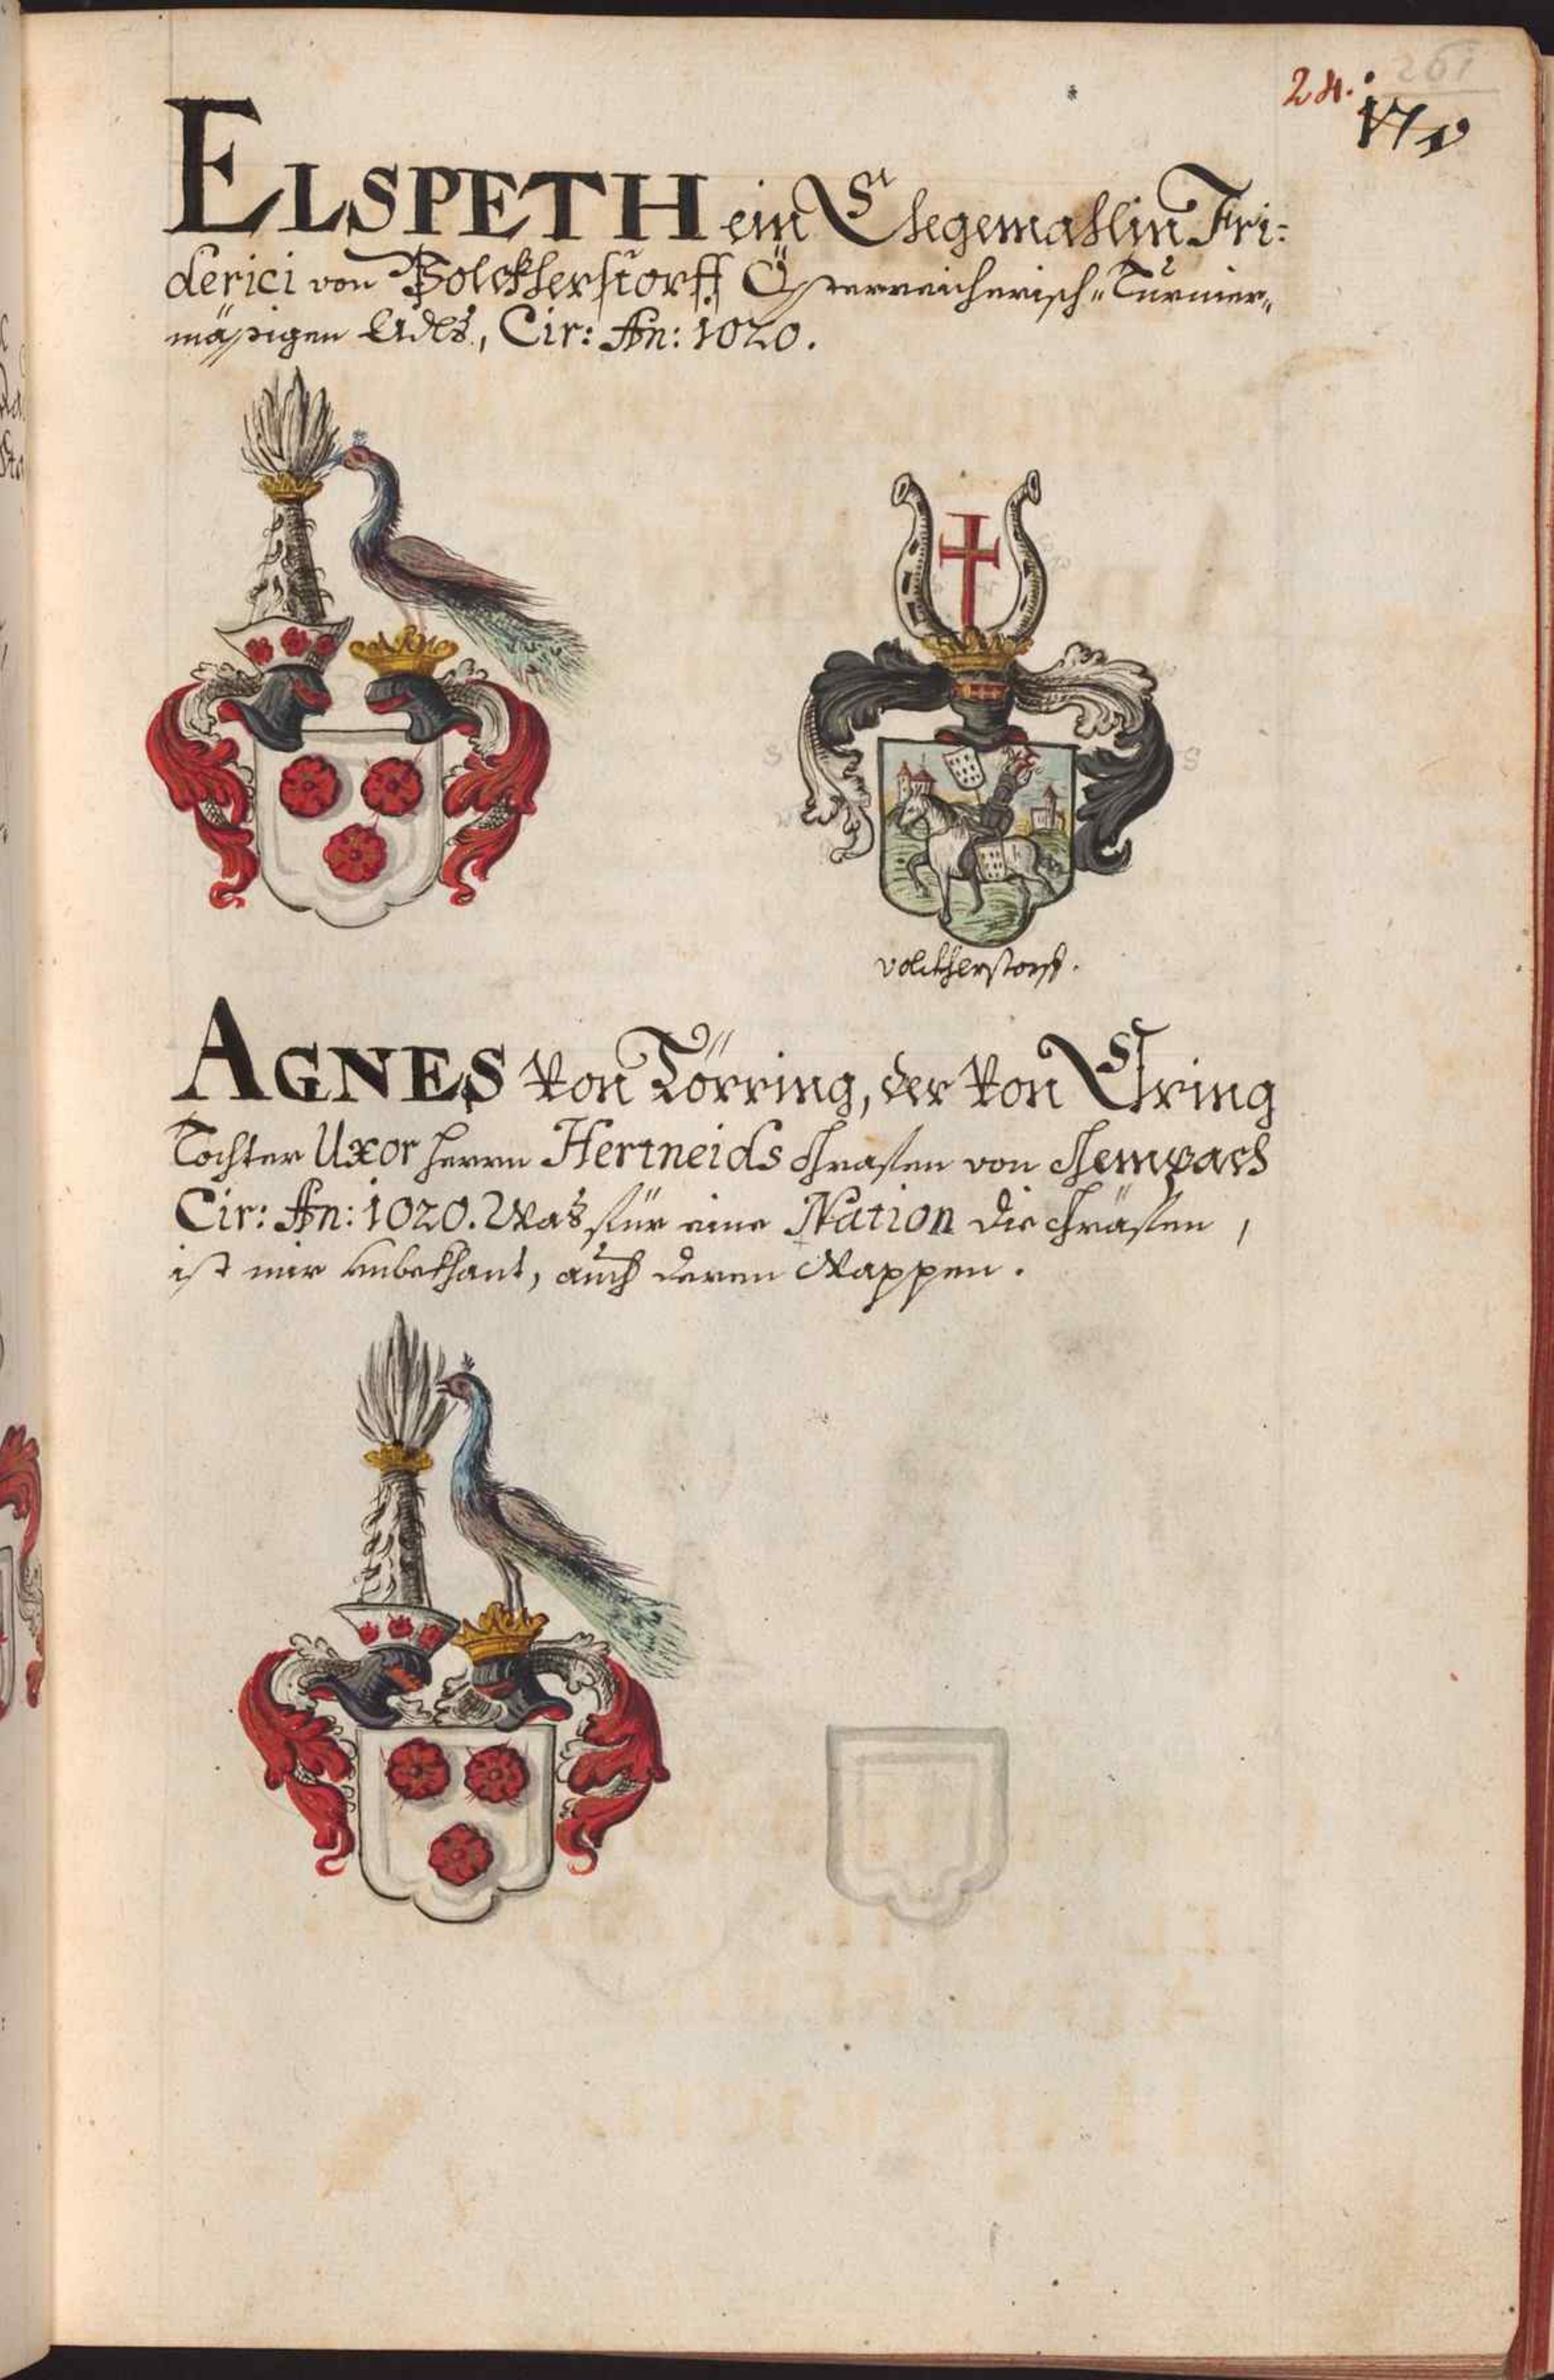 24.
ELSPETH ein Ehegemahlin Fri:
derici von Volckherstorff Österreicherisch Turnier-
mässigen Adls, Cir: An: 1020.
volckherstorff.
AGNES von Törring, der von Ering
Tochter Uxor Herrn Hertneids Grafen von
Cir: An: 1020. Was für eine Nation die Gräfen,
ist mir unbekhant, auch deren Wappen.